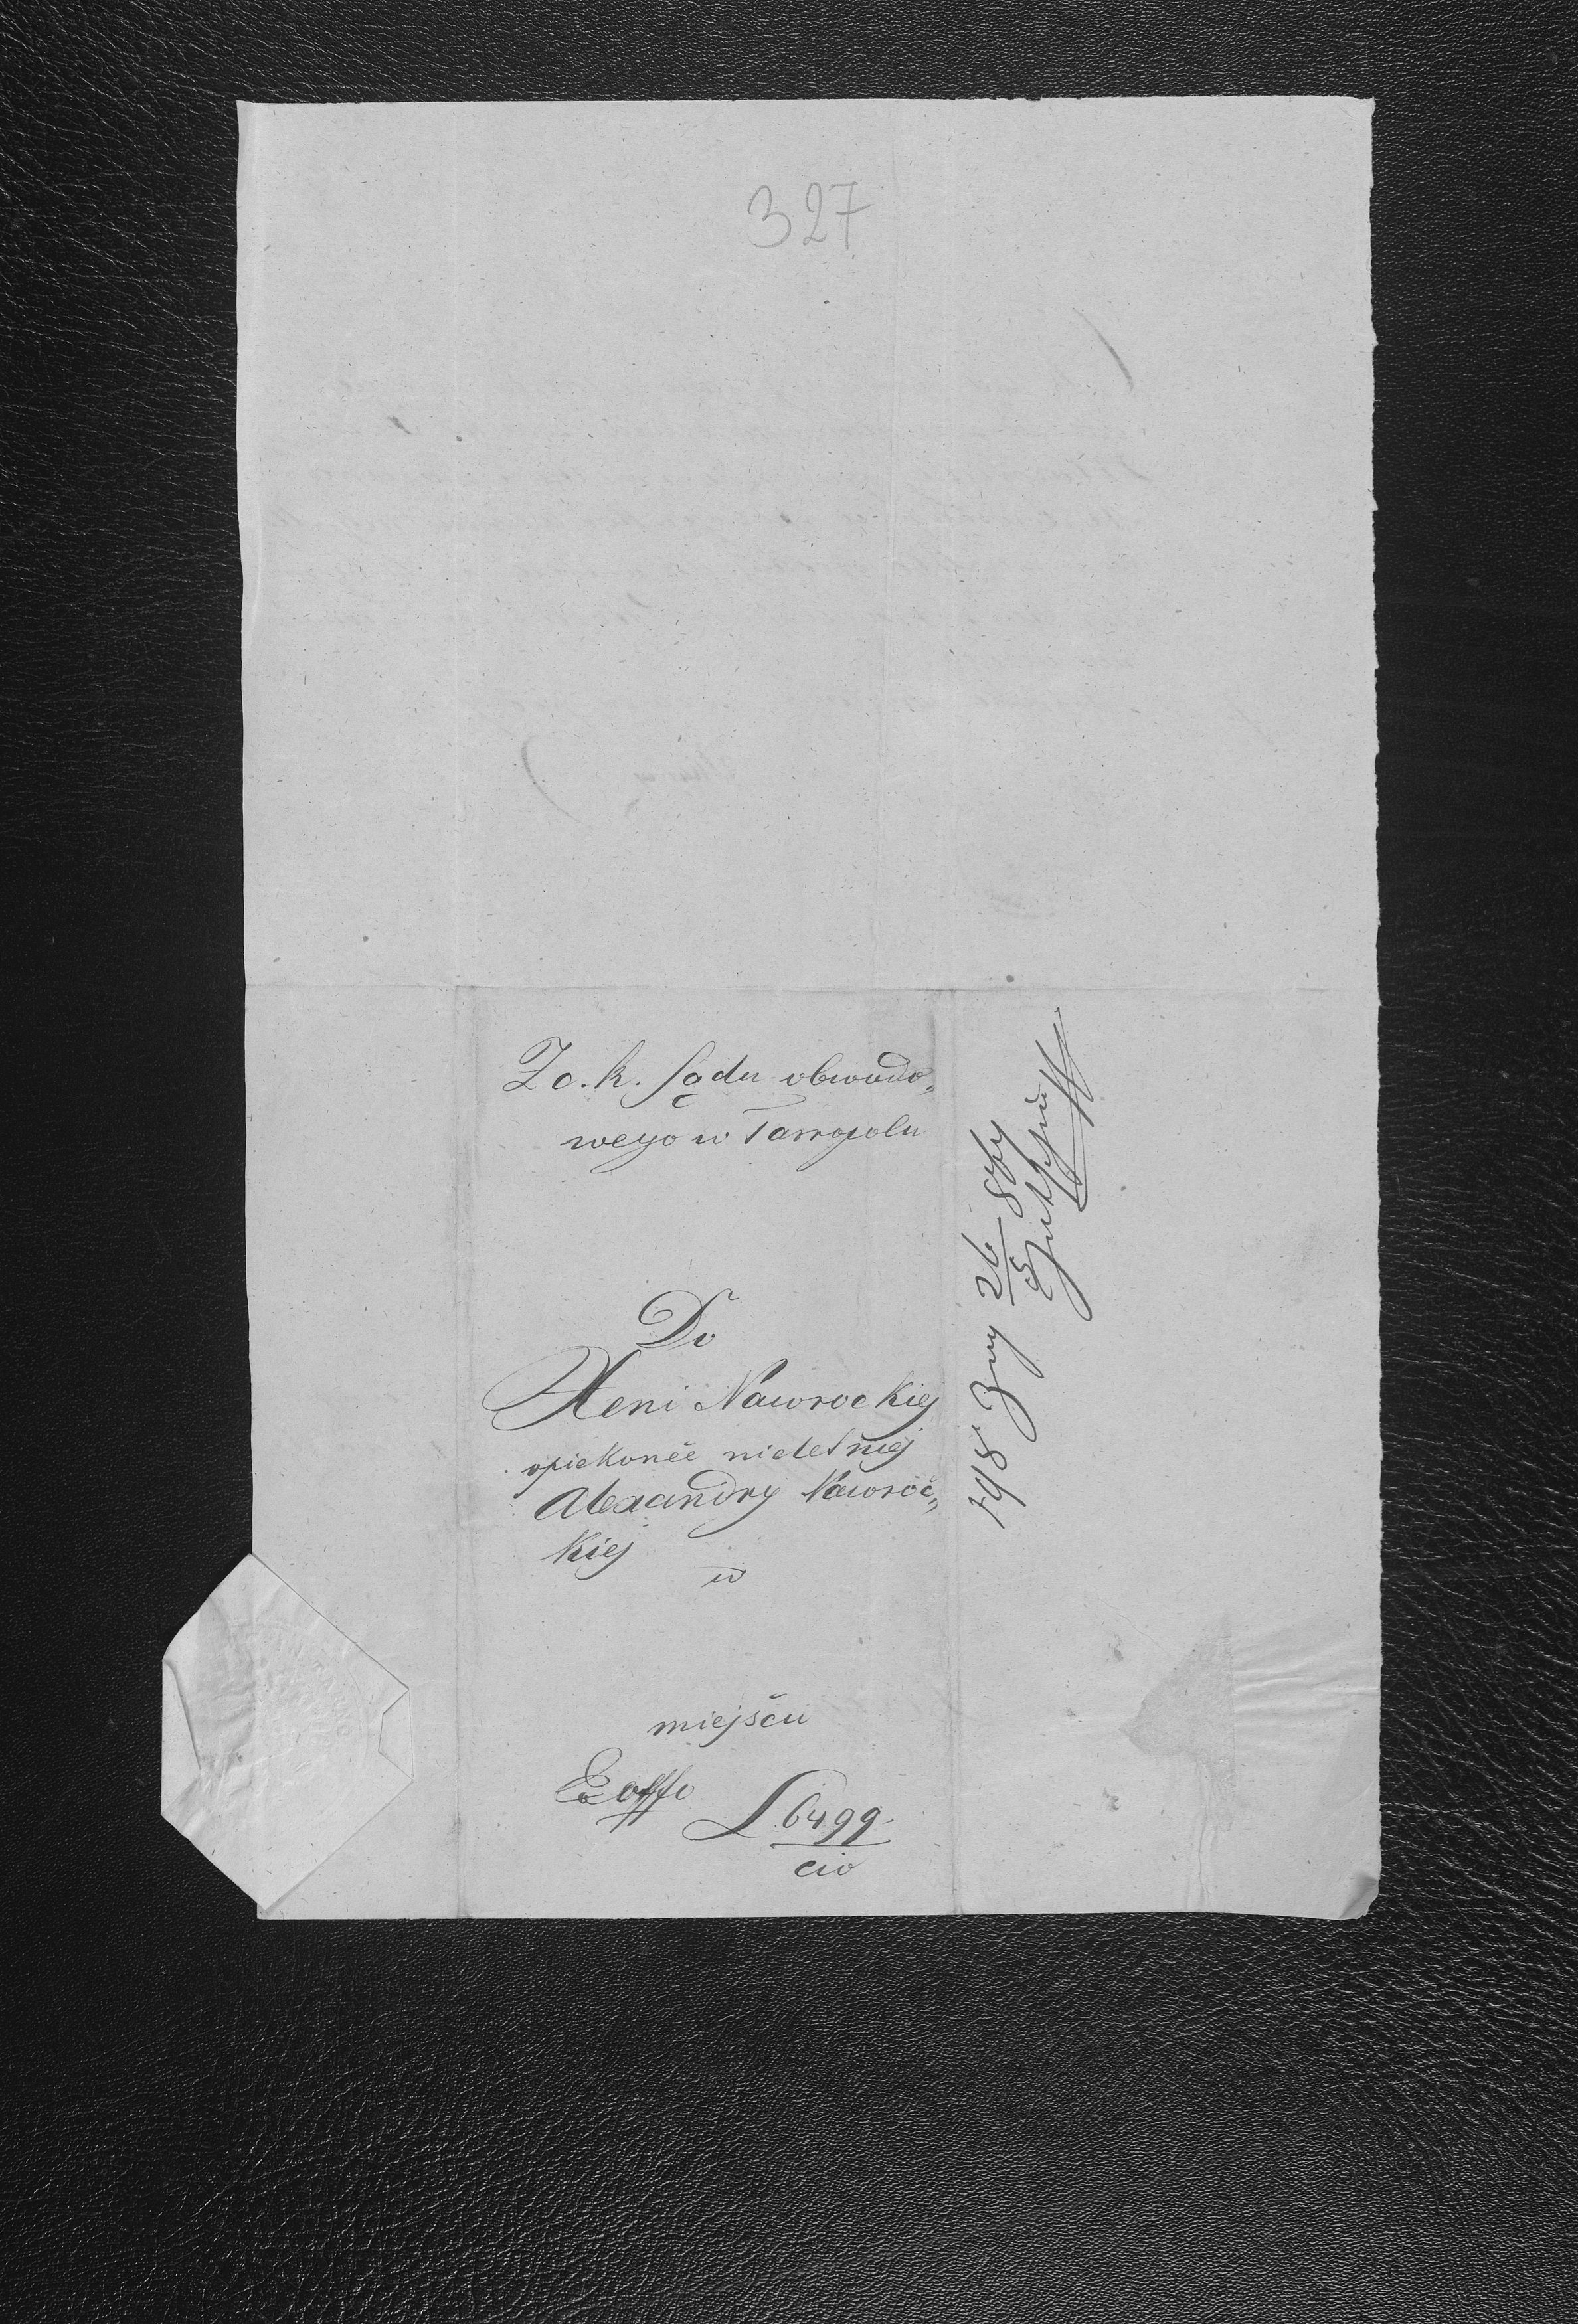 327
Z c. k. Sądu obwodo„
wego w Tarnopolu
Do
Xeni Nawrockiej
opiekonče nieletniej
Alexandry Nawroc„
kiej
w
miejscu
Ex offo
L 6499
cio
798
26